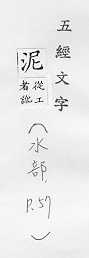 五經文字
泥
從工
者訛
（水部，
P.57
）